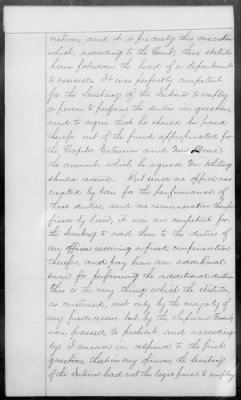 cretion, and it is precisely this discretion
which, according to the Court, these statutes
have forbidden the head of a department
to exercise. It was perfectly competent
for the Secretary of the Interior to employ
a person to perform the duties in question,
and to agree that he should be paid
therefor out of the fund appropriated for
the Capitol Extension and New Dome,
the amount which he agreed Mr. Whiting
should receive. But since no office was
created by law for the performance of
those duties, and no remuneration therefor
fixed by law, it was not competent for
the Secretary to add them to the duties of
an officer receiving a fixed compensation
therefor, and pay him an additional
sum for performing the additional duties.
This is the very thing which the statutes,
as construed, not only by the majority of
my predecessors but by the Supreme Court
were passed to prohibit and according-
ly I answer in response to the first
question that in my opinion the Secretary
of the Interior had not the legal power to employ